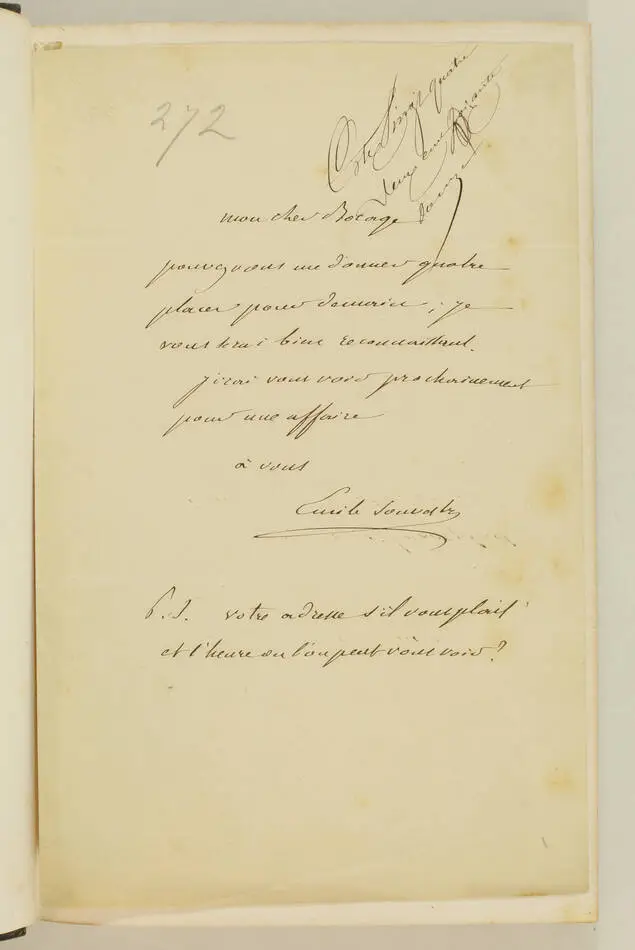 272
Cote Vingt quatre
deux cent soixante
douze
mon cher Bocage
pouvez vous me donner quatre
places pour demain ; je
vous serai bien reconnaissant.
j'irai vous voir prochainement
pour une affaire
à vous
Emile Souvestre
P. S. votre adresse s'il vous plait
et l'heure ou l'on peut vous voir ?